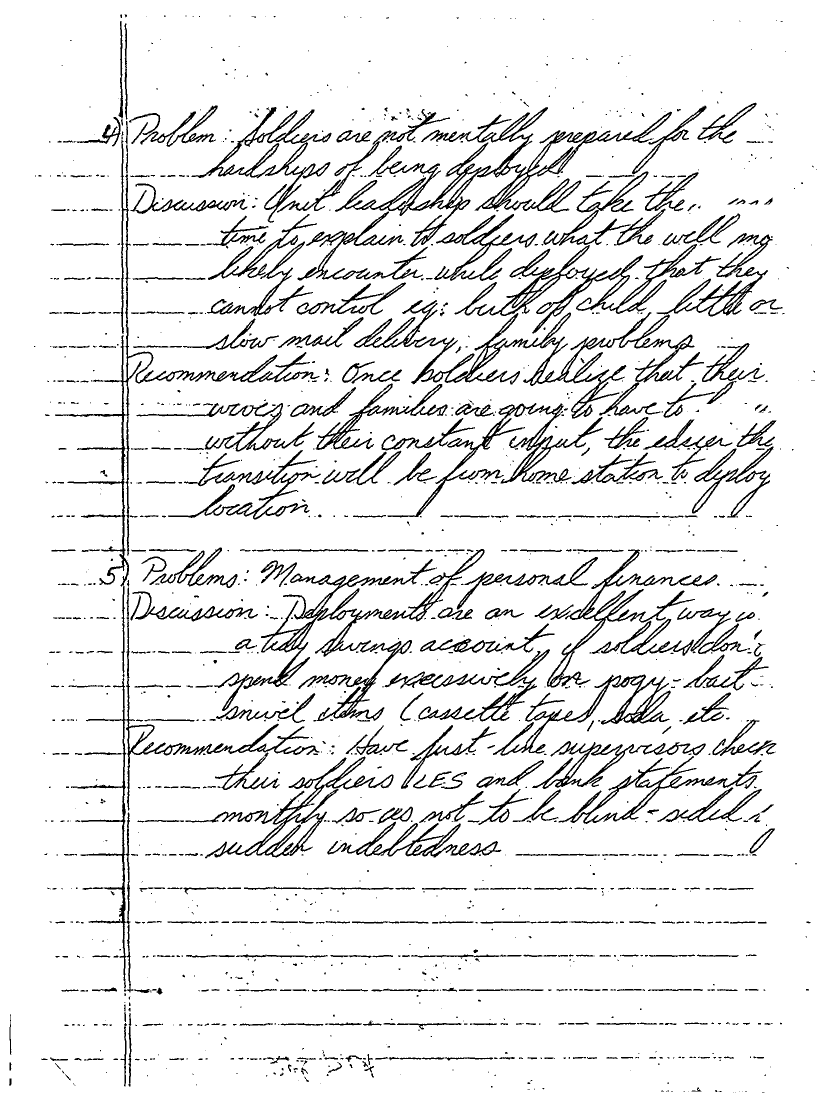 4) Problem: Soldiers are not mentally prepared for the
hardships of being deployed
Discussion: Unit leadership should take the
time to explain to soldiers what the will mo
likely encounter while deployed that they
cannot control eg: birth of child, little or
slow mail delivery, family problems
Recommendation: Once soldiers realize that their
wives and families are going to have to
without their constant input, the easier the
transition will be from home station to deploy
location.
5) Problems: Management of personal finances.
Discussion: Deployments are an excellent way
a tidy savings account, if soldiers don't
spend money excessively on pogy-bait
snivil items (cassette tapes, soda, etc.
Recommendation: Have first-line supervisors check
their soldiers LES and bank statements
monthly so as not to be blind-sided
sudden indebtedness